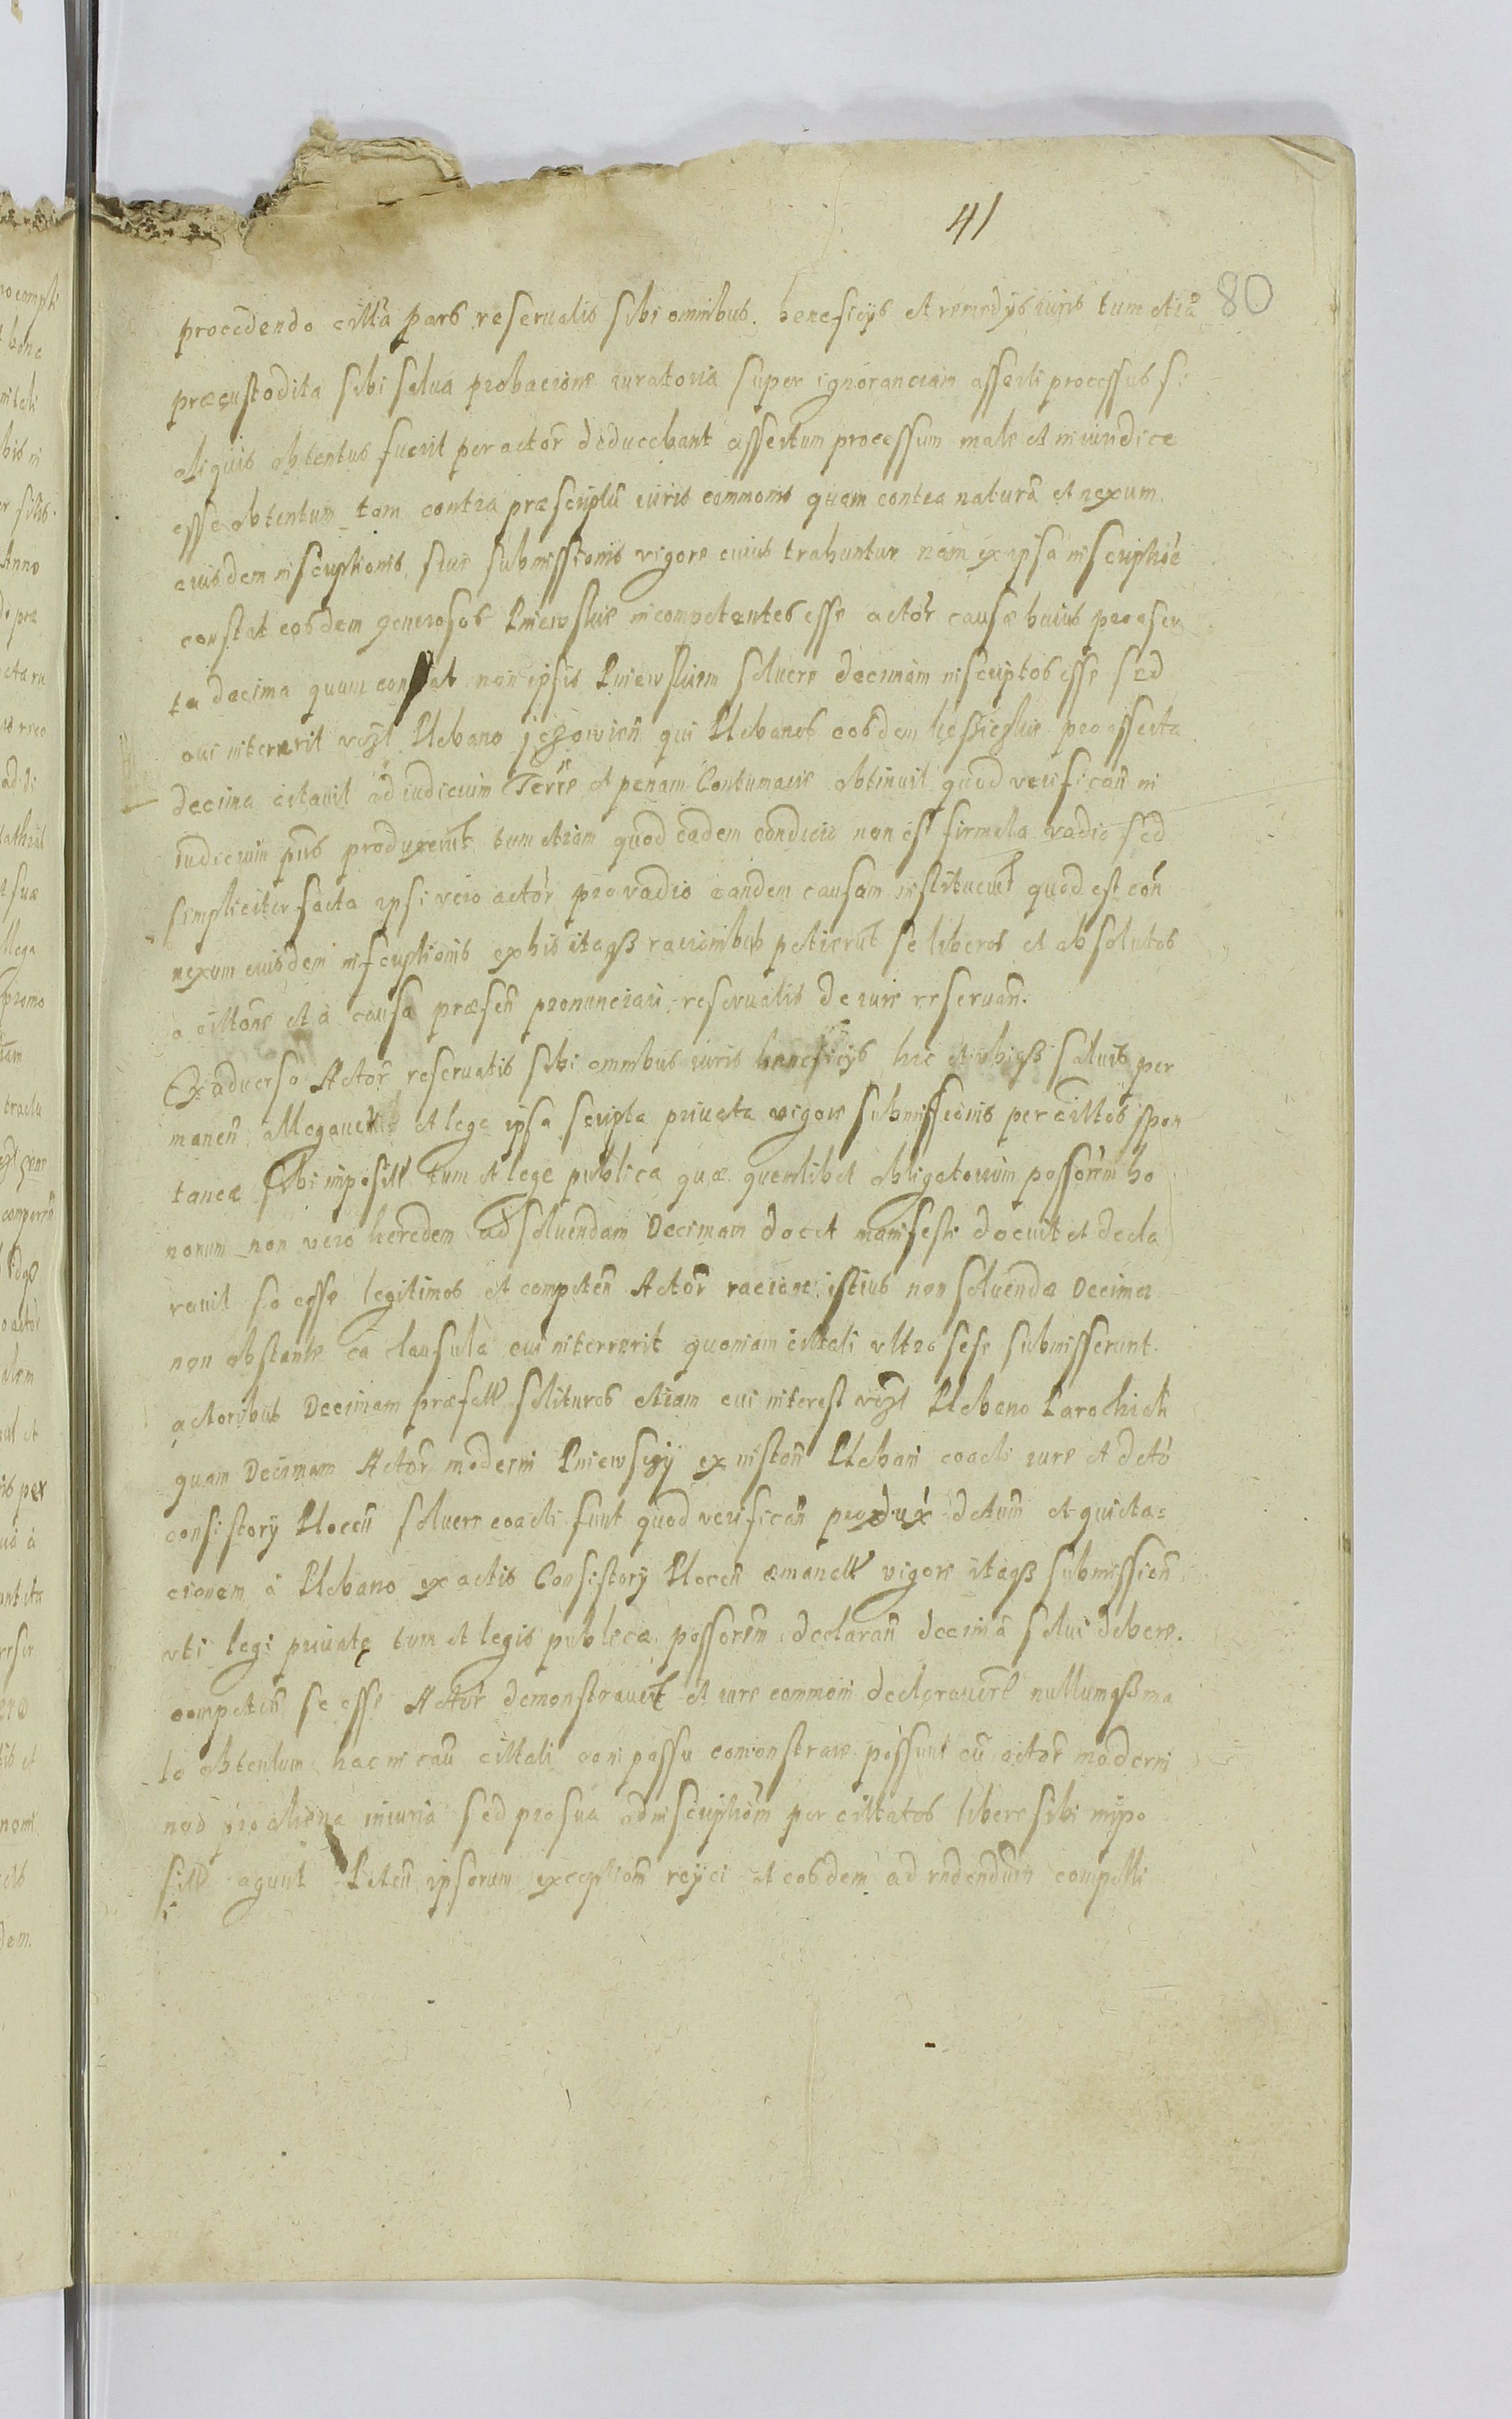 41
80
procedendo cittã pars reservatis sibi omnibus beneficÿs et remedÿs iuris tum etiã
præcustodita sibi salua probacione iuratoria super ignoranciam asserti processus si
aliquis obtentus fuerit per actor̃ deducebant assertum processum male et iniuridice
esse obtentum tam contra præscriptũ iuris commonis quam contra naturã et nexum
eiusdem inscriptionis siue submissionis vigore cuius trahuntur nam ex ipsa inscriptiõe
constat eosdem generosos Pniewskie incompetentes esse actor̃ causæ huius pro asser
ta decima quum constat non ipsis Pniewskim soluere decimam inscriptos esse sed
cui intererit vizt Plebano qui Plebanus eosdem pro asserta
decima citauit ad iudicium Terr̃e et penam Contumacie obtinuit quod verificañ in
iudicium pñs produxerũt tum etiam quod eadem condicio non est firmata vadio sed
simpliciter facta ipsi vero actor̃ pro vadio eandem causam instituerũt quod est con
nexum eiusdem inscriptionis ex his itaqß racionibus petierũt se liberos et absolutos
a cittõne et a causa præseñ pronunciari reservatis de iure reseruañ.
Ex aduerso Actor̃ reseruatis sibi omnibus iuris beneficÿs hic et vbiqß saluis per
maneñ allegauer̃ et lege ipsa scripta priuata vigore submissionis per cittos spon
tanea sibi imposiť tum et lege publica quæ quemlibet obligatorium possorẽm bo
norum non vero heredem ad soluendam Decimam docet manifeste docuit et decla
rauit se esse legitimos et competeñ Actor̃ racione istius non soluendæ Decimæ
non obstante ea clausula cui intererit quoniam cittati vltro sese submisserunt
actoribus Decimam præfatť solituros etiam cui interest vizt Plebano Parochiali
quam Decimam Actor̃ moderni Pniewsczÿ ex instañ Plebani coacti iure et detõ
consistorÿ Ploceñ soluere coacti sunt quod verificañ produx̃ detum et quieta=
cionem a Plebano ex actis Consistorÿ Ploceñ emanatť vigore itaqß submissioñ
vti legi priuatę tum et legis publicæ possorem declarañ decimã solui debere.
competeñ se esse Actor̃ demonstrauerũt et iure commoni declarauerũt nullumqß ma
le obtentum hac in cau͂ cittati comonstrare possunt cũ actor̃ moderni
non pro aliena iniuria sed pro sua ad inscriptiõm per cittatos libere sibi impo
siť agunt Peteñ ipsorum exceptiõm reÿci et eosdem ad rñdendum compelli